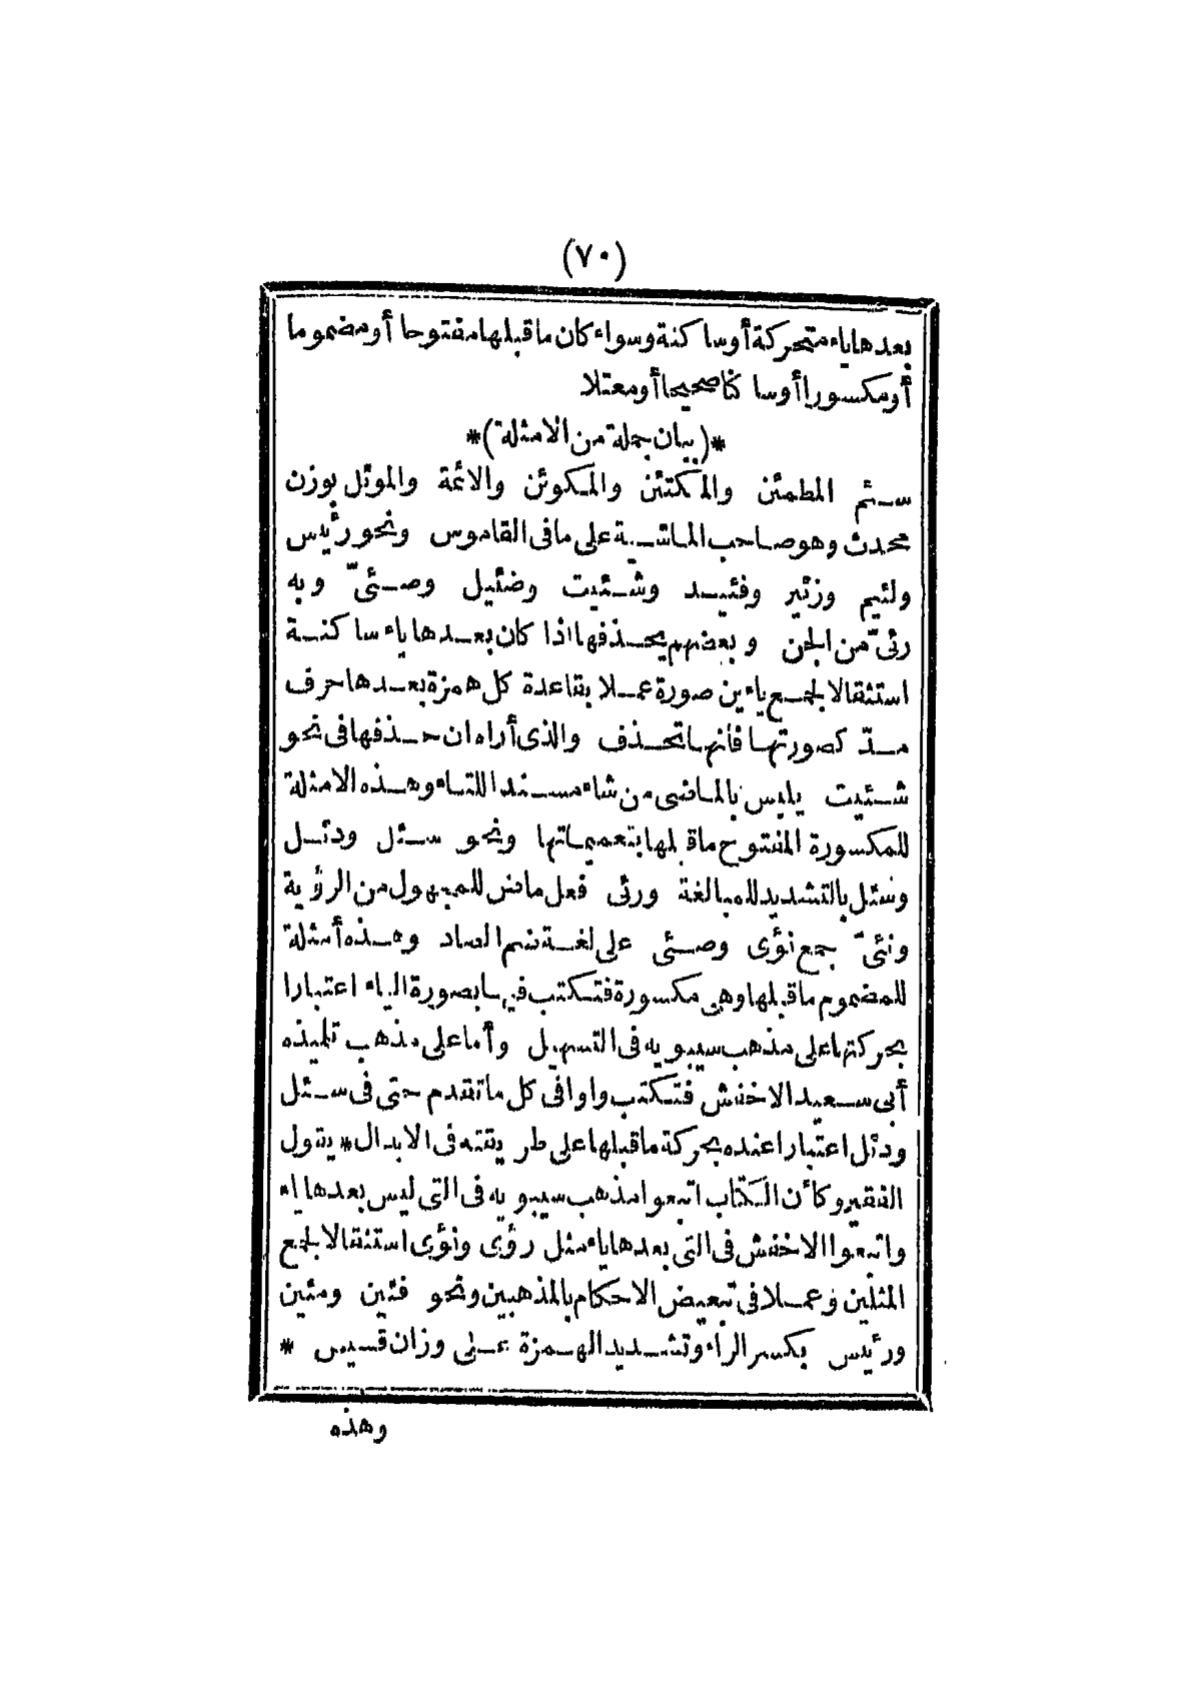 (٧٠)
بعدها ياء متحركة أو ساكنة وسواء كان ما قبلها مفتوحا أو مضموما
أو مكسورا أو ساكنا صحيحا أو معتلا
*(بيان جملة من الامثلة)*
سئم المطمئن والمكتئن والمكوئن والائمة والموئل بوزن
محدث وهو صاحب الماشية على ما فى القاموس ونحو رئيس
ولئيم وزئير وفئيد وشئيت وضئيل وصئىّ وبه
رئىّ من الجن وبعضهم يحذفها اذا كان بعدها ياء ساكنة
استثقالا لجمع ياءين صورة عملا بقاعدة كل همزة بعدها حرف
مدّ كصورتها فأنها تحذف والذى أراه ان حذفها فى نحو
شئيت يلبس بالماضى من شاء مسندا للتاء وهذه الامثلة
للمكسورة المفتوح ما قبلها بتعميماتها ونحو سئل ودئل
وسئل بالتشديد للمبالغة ورئى فعل ماض للمجهول من الرؤية
ونئىّ جمع نؤى وصئى على لغة ضم الصاد وهذه أمثلة
للمضموم ما قبلها وهى مكسورة فتكتب فيها بصورة الياء اعتبارا
بحركتها على مذهب سيبويه فى التسهيل وأما على مذهب تلميذه
أبى سعيد الاخفش فتكتب واوا فى كل ما تقدم حتى فى سئل
ودئل اعتبارا عنده بحركة ما قبلها على طريقته فى الابدال * يقول
الفقير وكأن الكتاب اتبعوا مذهب سيبويه فى التى ليس بعدها ياء
واتبعوا الاخفش فى التى بعدها ياء مثل رؤى ونؤى استثقالا لجمع
المثلين وعملا فى تبعيض الاحكام بالمذهبين ونحو فئين ومئين
ورئيس بكسر الراء وتشديد الهمزة على وزان قسيس *
وهذه